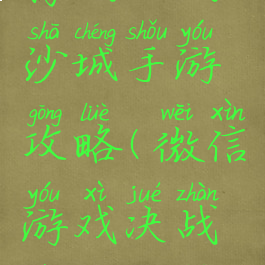 shā chéng shǒu yóu
沙城手游
gōng lüè wēi xìn
攻略(微信
yóu xì jué zhàn
游戏决战